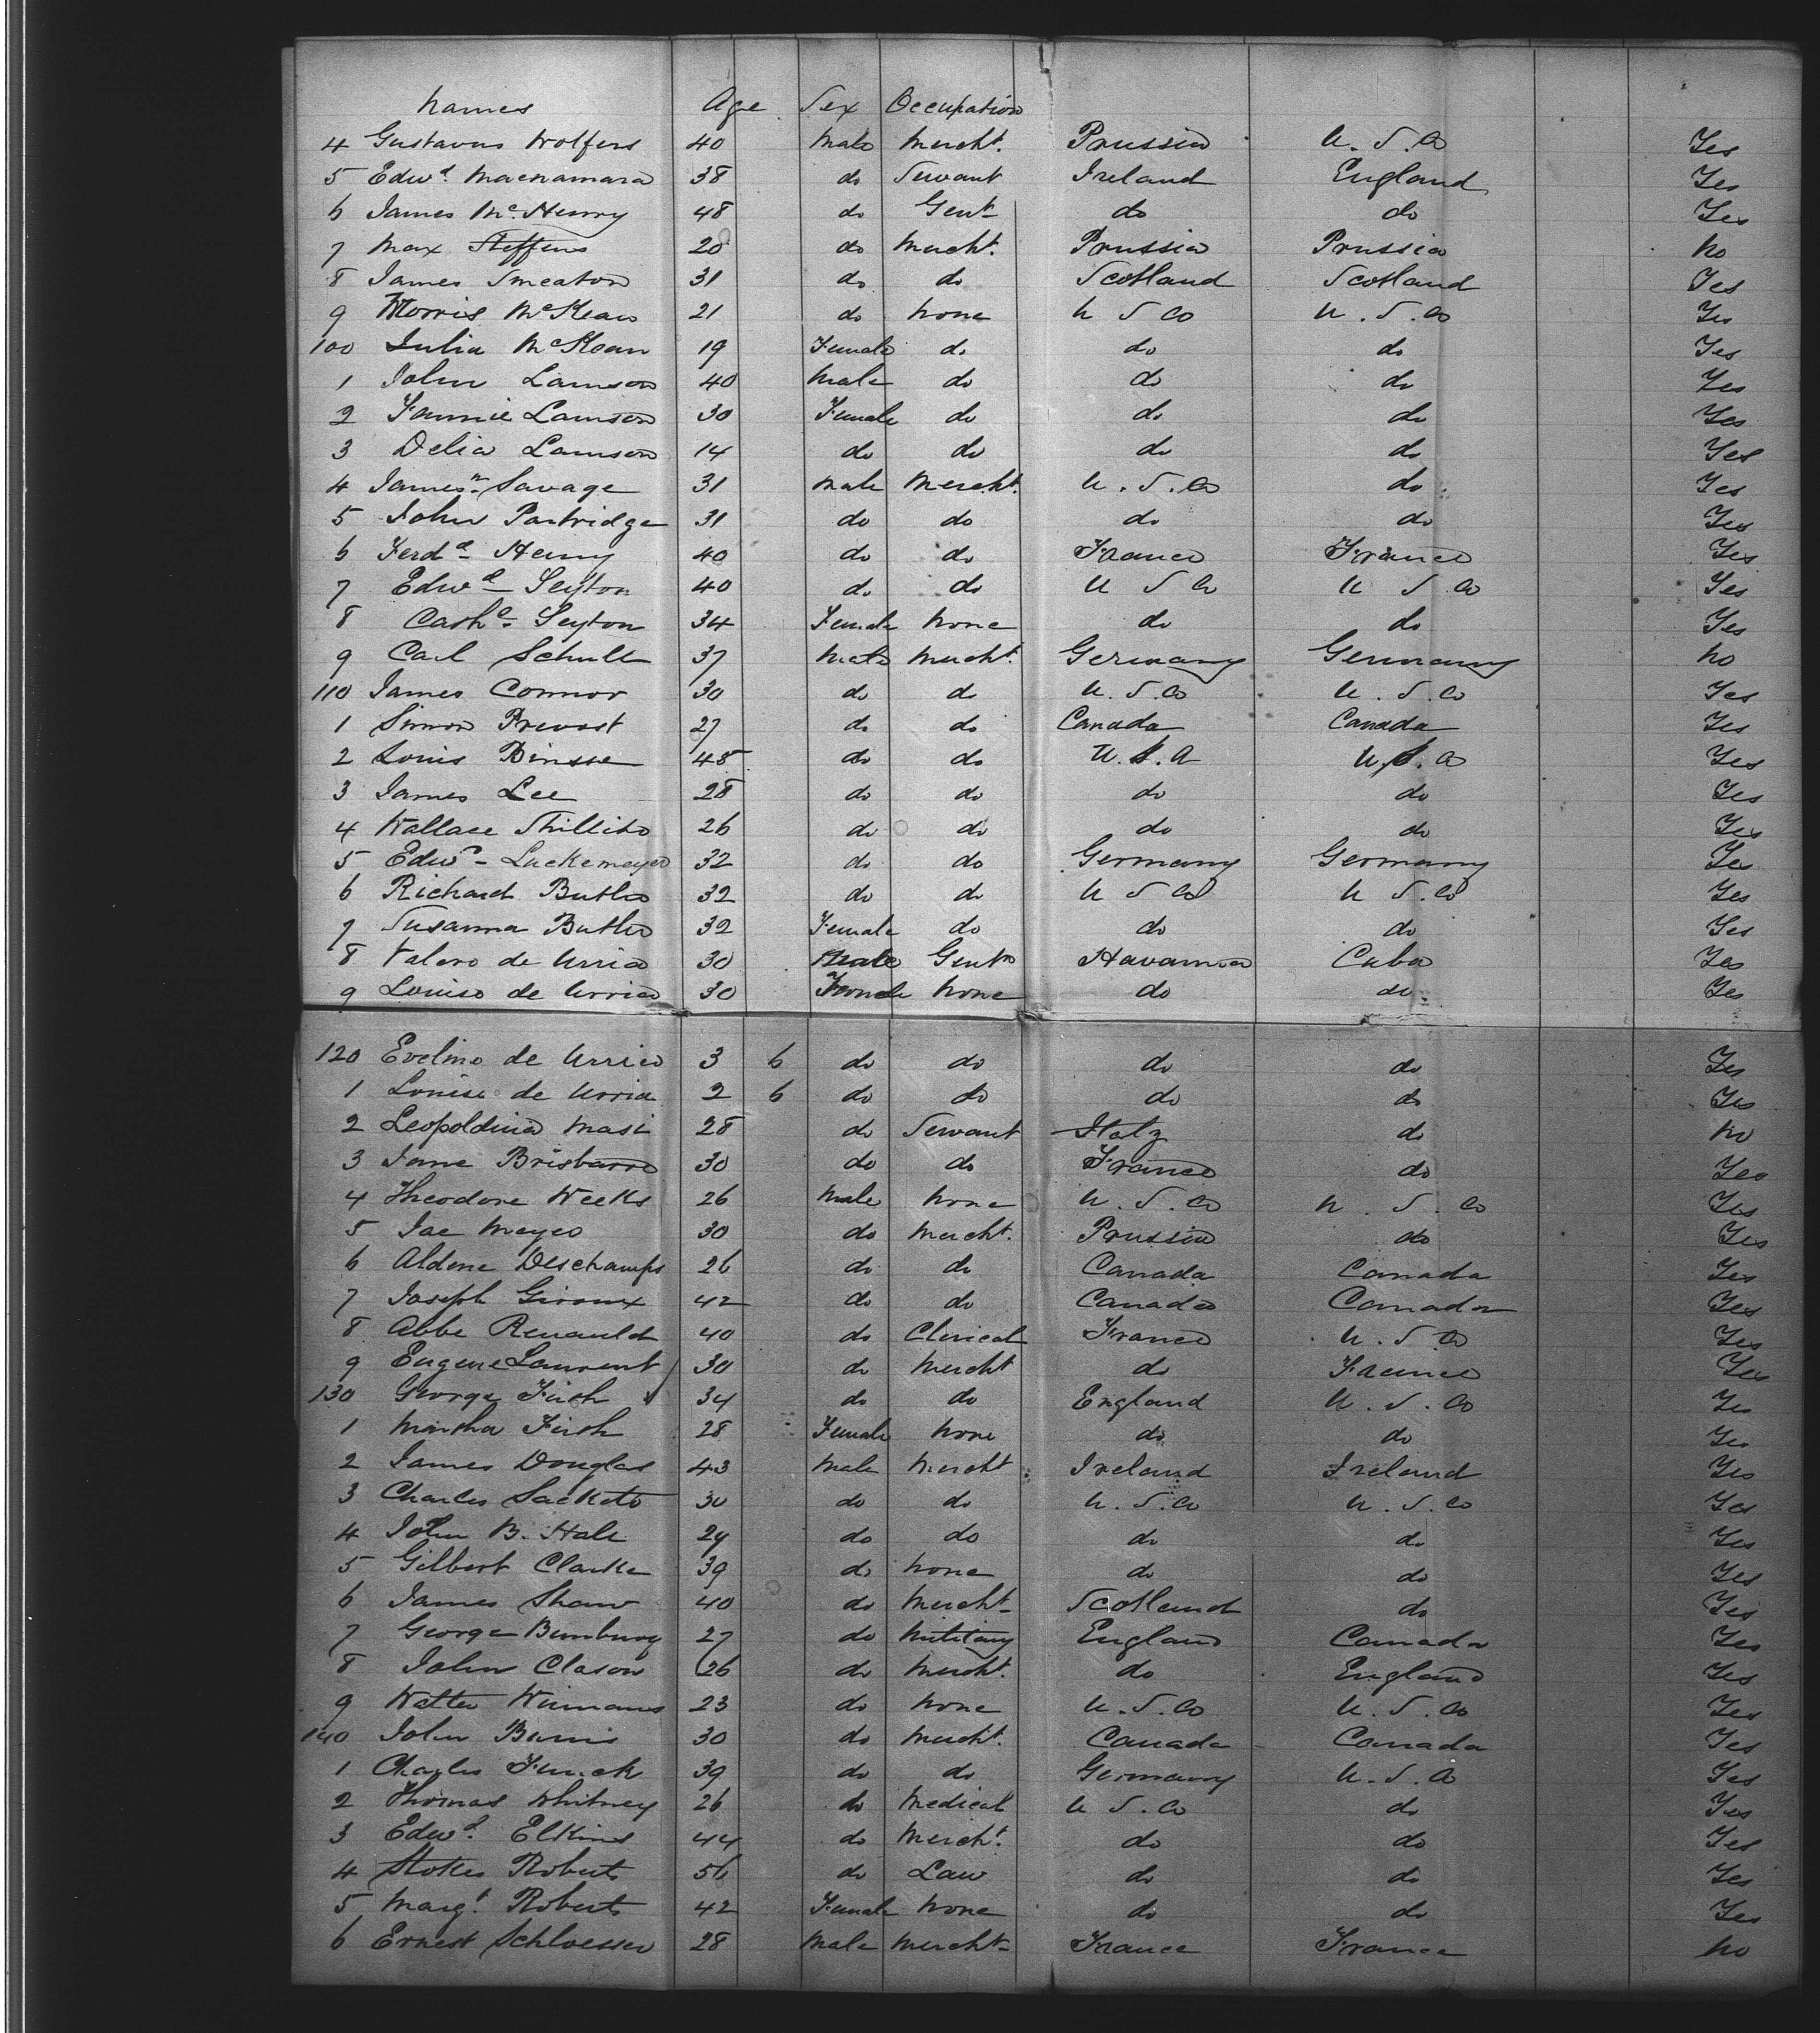 Names Age Sex Occupation
4 Gustavus Wolfers 40 Male Mercht. Prussia U.S.A Yes
5 Edwd. Macnamara 38 do Servant Ireland England Yes
6 James McHenry 48 do Gent do do Yes
7 Max Steffens 20 do Mercht. Prussia Prussia No
8 James Smeaton 31 do do Scotland Scotland Yes
9 Morris McKean 21 do None U S A U.S.A Yes
100 Julia McKean 19 Female do do do Yes
1 John Lamson 40 Male do do do Yes
2 Fannie Lamson 30 Female do do do Yes
3 Delia Lamson 14 do do do do Yes
4 James Savage 31 Male Mercht. U.S.A do Yes
5 John Partridge 31 do do do do Yes
6 Ferdd Henry 40 do do France France Yes
7 Edwd Leyton 40 do do U S A U S A Yes
8 Cathe Leyton 34 Female None do do Yes
9 Carl Schull 37 Male Mercht. Germany Germany No
110 James Connor 30 do do U.S.A U.S.A Yes
1 Simon Prevost 27 do do Canada Canada Yes
2 Louis Binsse 45 do do U.S.A U.S.A Yes
3 James Lee 28 do do do do Yes
4 Wallace Shillito 26 do do do do Yes
5 Edwd Luckemeyer 32 do do Germany Germany Yes
6 Richard Butler 32 do do U S A U S.A Yes
7 Susanna Butler 32 Female do do do Yes
8 Valero de Urria 30 Male Gentn Havanna Cuba Yes
9 Louise de Urria 30 Female None do do Yes
120 Eveline de Urria 3 6 do do do do Yes
1 Louise de Urria 2 6 do do do do Yes
2 Leopoldina Masi 28 do Servant Italy do No
3 Jane 30 do do France do Yes
4 Theodore Weeks 26 Male None U.S.A U.S.A Yes
5 Jac Meyer 30 do Mercht. Prussia do Yes
6 Deschamps 26 do do Canada Canada Yes
7 Joseph Giroux 42 do do Canada Canada Yes
8 Abbe Renauld 40 do Clerical France U.S.A Yes
9 Eugene Laurent 30 do Mercht do France Yes
130 George Firth 34 do do England U.S.A Yes
1 Martha Firth 28 Female None do do Yes
2 James Douglas 43 Male Mercht Ireland Ireland Yes
3 Charles Sackett 30 do do U.S.A U.S.A Yes
4 John B. Hale 29 do do do do Yes
5 Gilbert Clarke 39 do None do do Yes
6 James Shaw 40 do Mercht Scotland do Yes
7 George Bunbury 27 do Military England Canada Yes
8 John Clason 26 do Mercht. do England Yes
9 Walter Winmans 23 do None U.S.A U.S.A Yes
140 John 30 do Mercht. Canada Canada Yes
1 Charles Funck 39 do do Germany U.S.A Yes
2 Thomas Whitney 26 do Medical U S.A do Yes
3 Edwd. Elkins 44 do Mercht. do do Yes
4 Stokes Roberts 56 do Law do do Yes
5 Margt. Roberts 42 Female None do do Yes
6 Ernest Schloesser 28 Male Mercht France France No